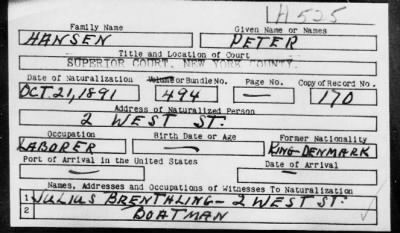 H 525
Family Name Given Name or Names
HANSEN PETER
Title and Location of Court
SUPERIOR COURT, NEW YORK COUNTY.
Date of Naturalization Volume or Bundle No. Page No. Copy of Record No.
OCT. 21, 1891 494 — 170
Address of Naturalized Person
2 WEST ST.
Occupation Birth Date or Age Former Nationality
LABORER — KING-DENMARK
Port of Arrival in the United States Date of Arrival
— —
Names, Addresses and Occupations of Witnesses To Naturalization
1 JULIUS BRENTHLING - 2 WEST ST.
2 BOATMAN